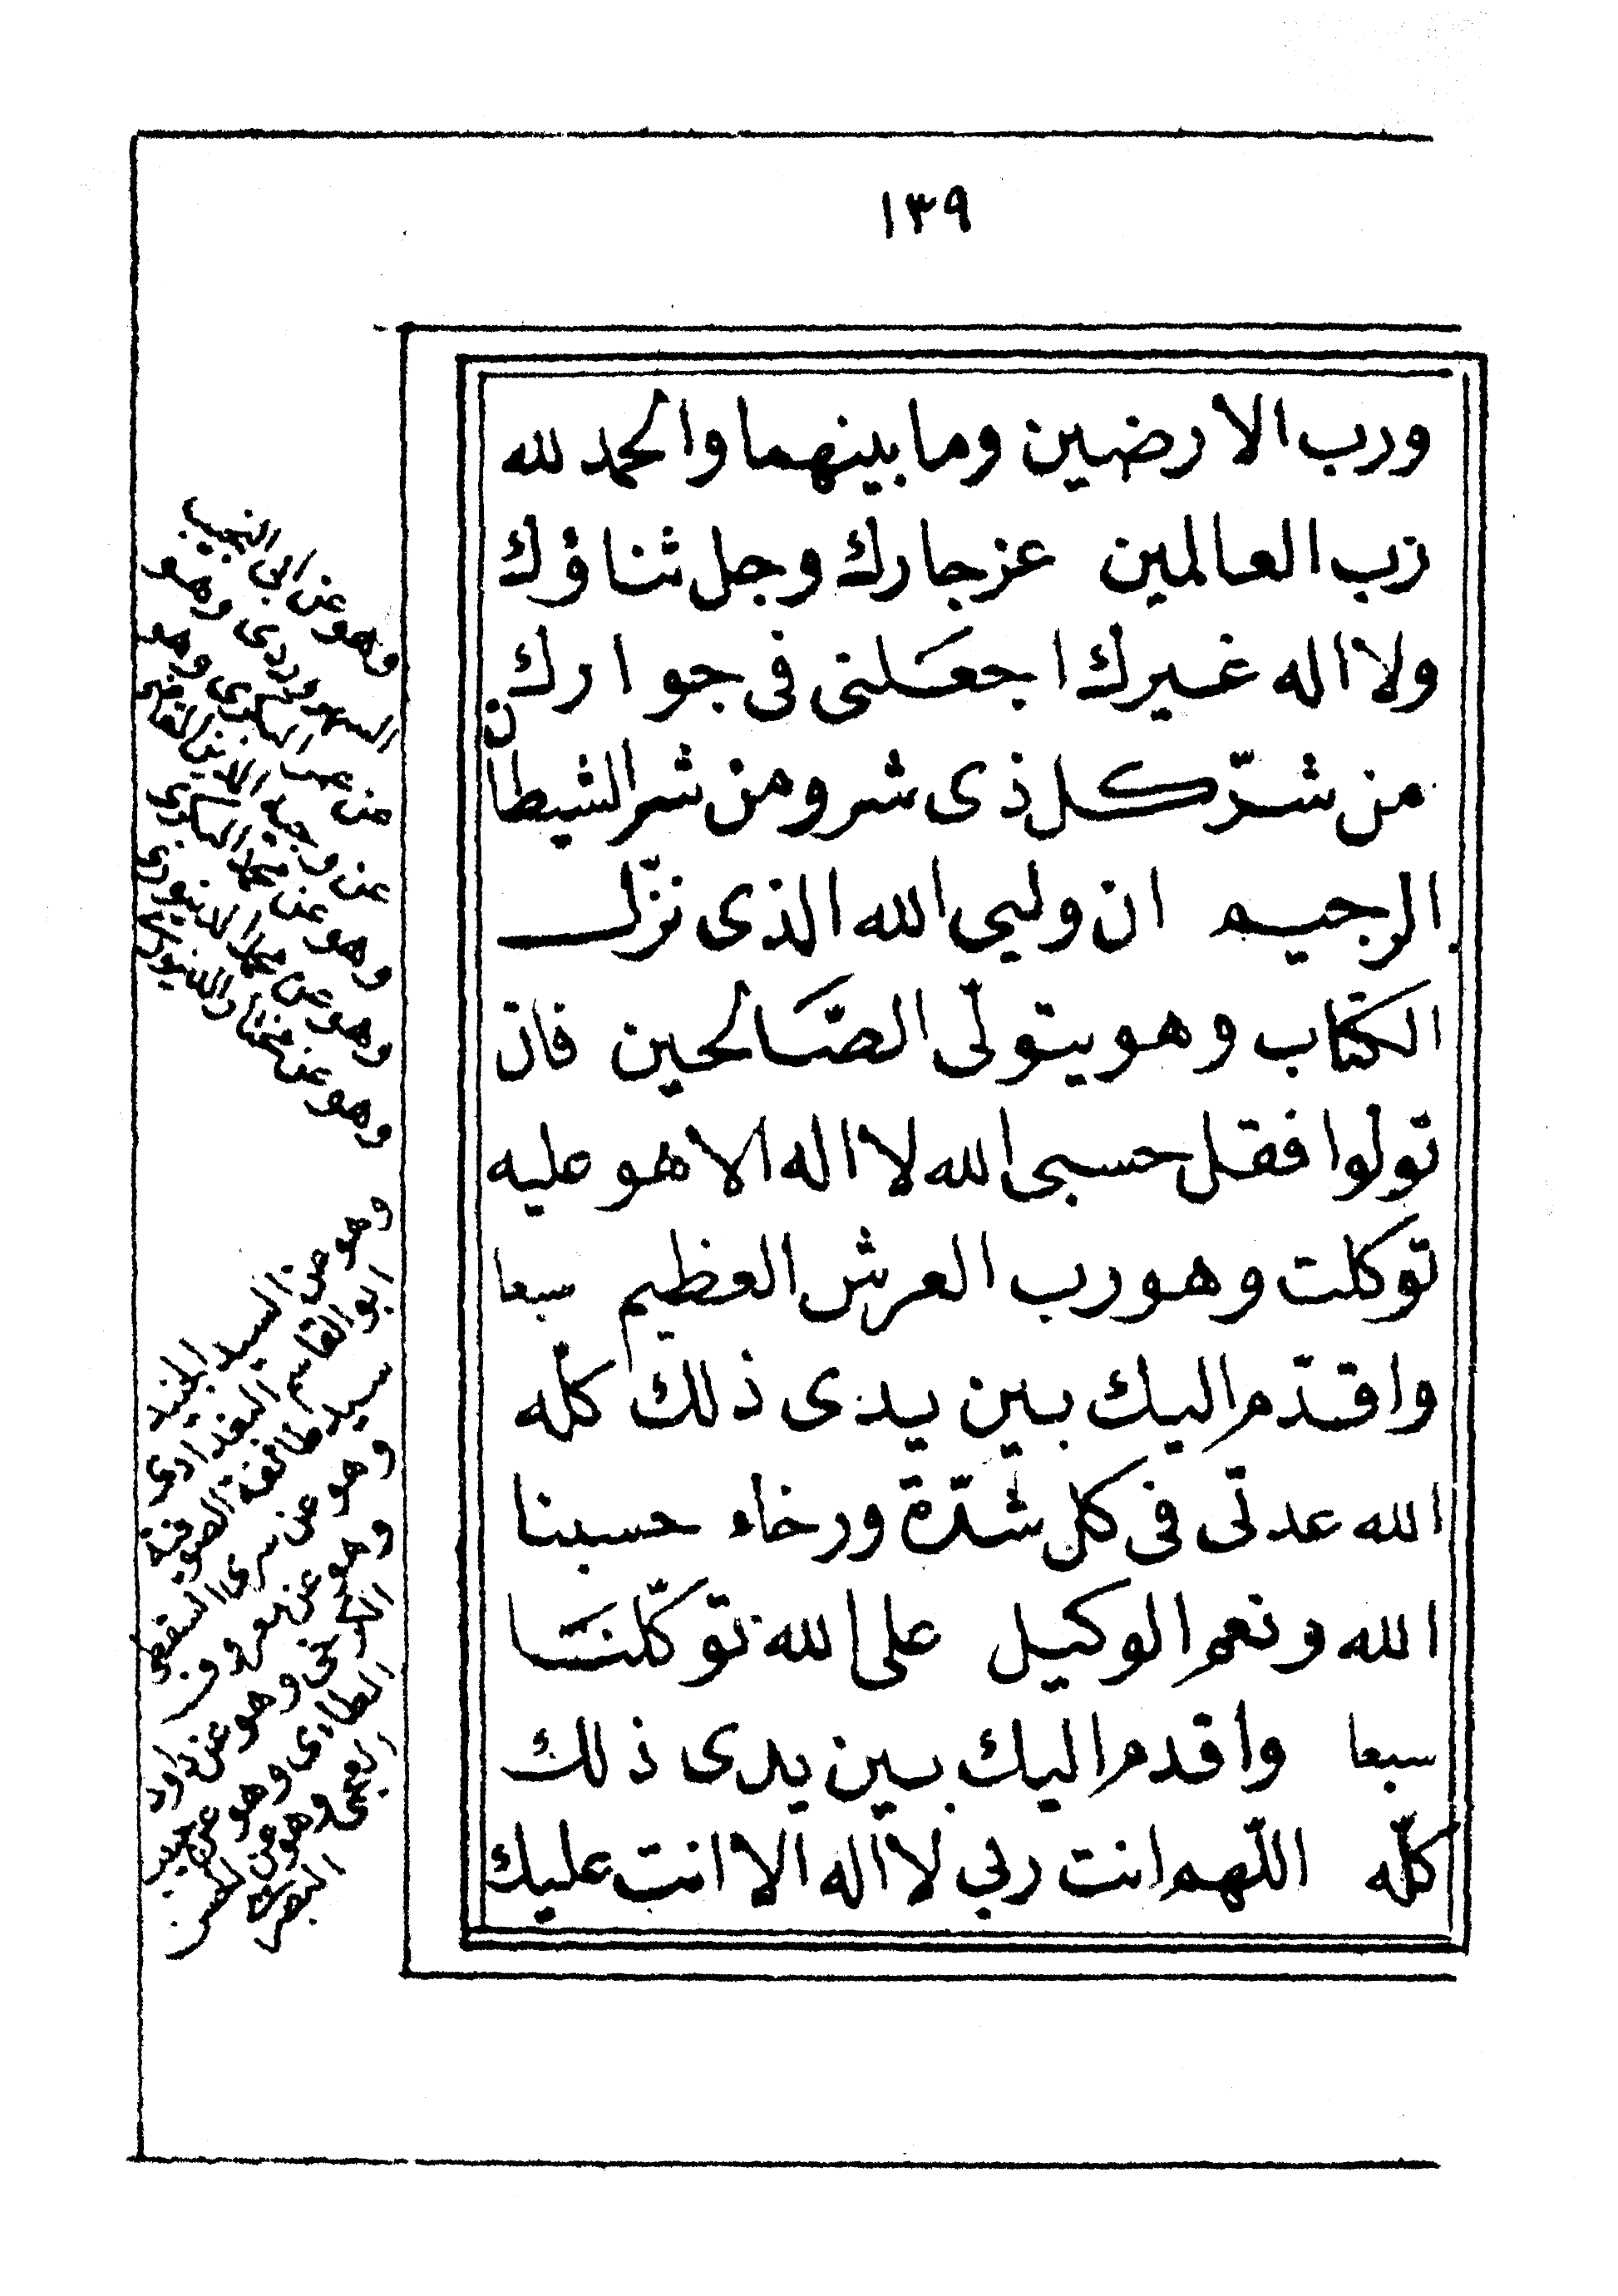 ١٣٩
ورب الارضين وما بينهما والحمد لله
رب العالمين عز جارك وجل ثناؤك
ولا اله غيرك اجعلنى فى جوارك
من شرّ كل ذى شر ومن شر الشيطان
الرجيم ان وليى الله الذى نزّل
الكتاب وهو يتولّى الصّالحين فان
تولوا فقل حسبى الله لا اله الا هو عليه
توكلت وهو رب العرش العظيم سبعا
واقدّم اليك بين يدى ذلك كلّه
الله عدتّى فى كل شدّة ورخاء حسبنا
الله ونعم الوكيل على الله توكّلنا
سبعا واقدم اليك بين يدى ذلك
كلّه اللّهم انت ربى لا اله الا انت عليك
وهو عن ابى النجيب
السهروردى وهو
عن وجيه الدين القاضى
وهو عن محمد البكرى
وهو عن محمد الدينورى
وهو عن ممشاد الدينورى
وهو عن السيد الجنيد
ابو القاسم البغدادى
سيد طائفة الصوفية
وهو عن سرى السقطى
وهو عن معروف
الكرخى وهو عن داود
الطائى وهو عن حبيب
العجمى وهو عن الحسن
البصرى